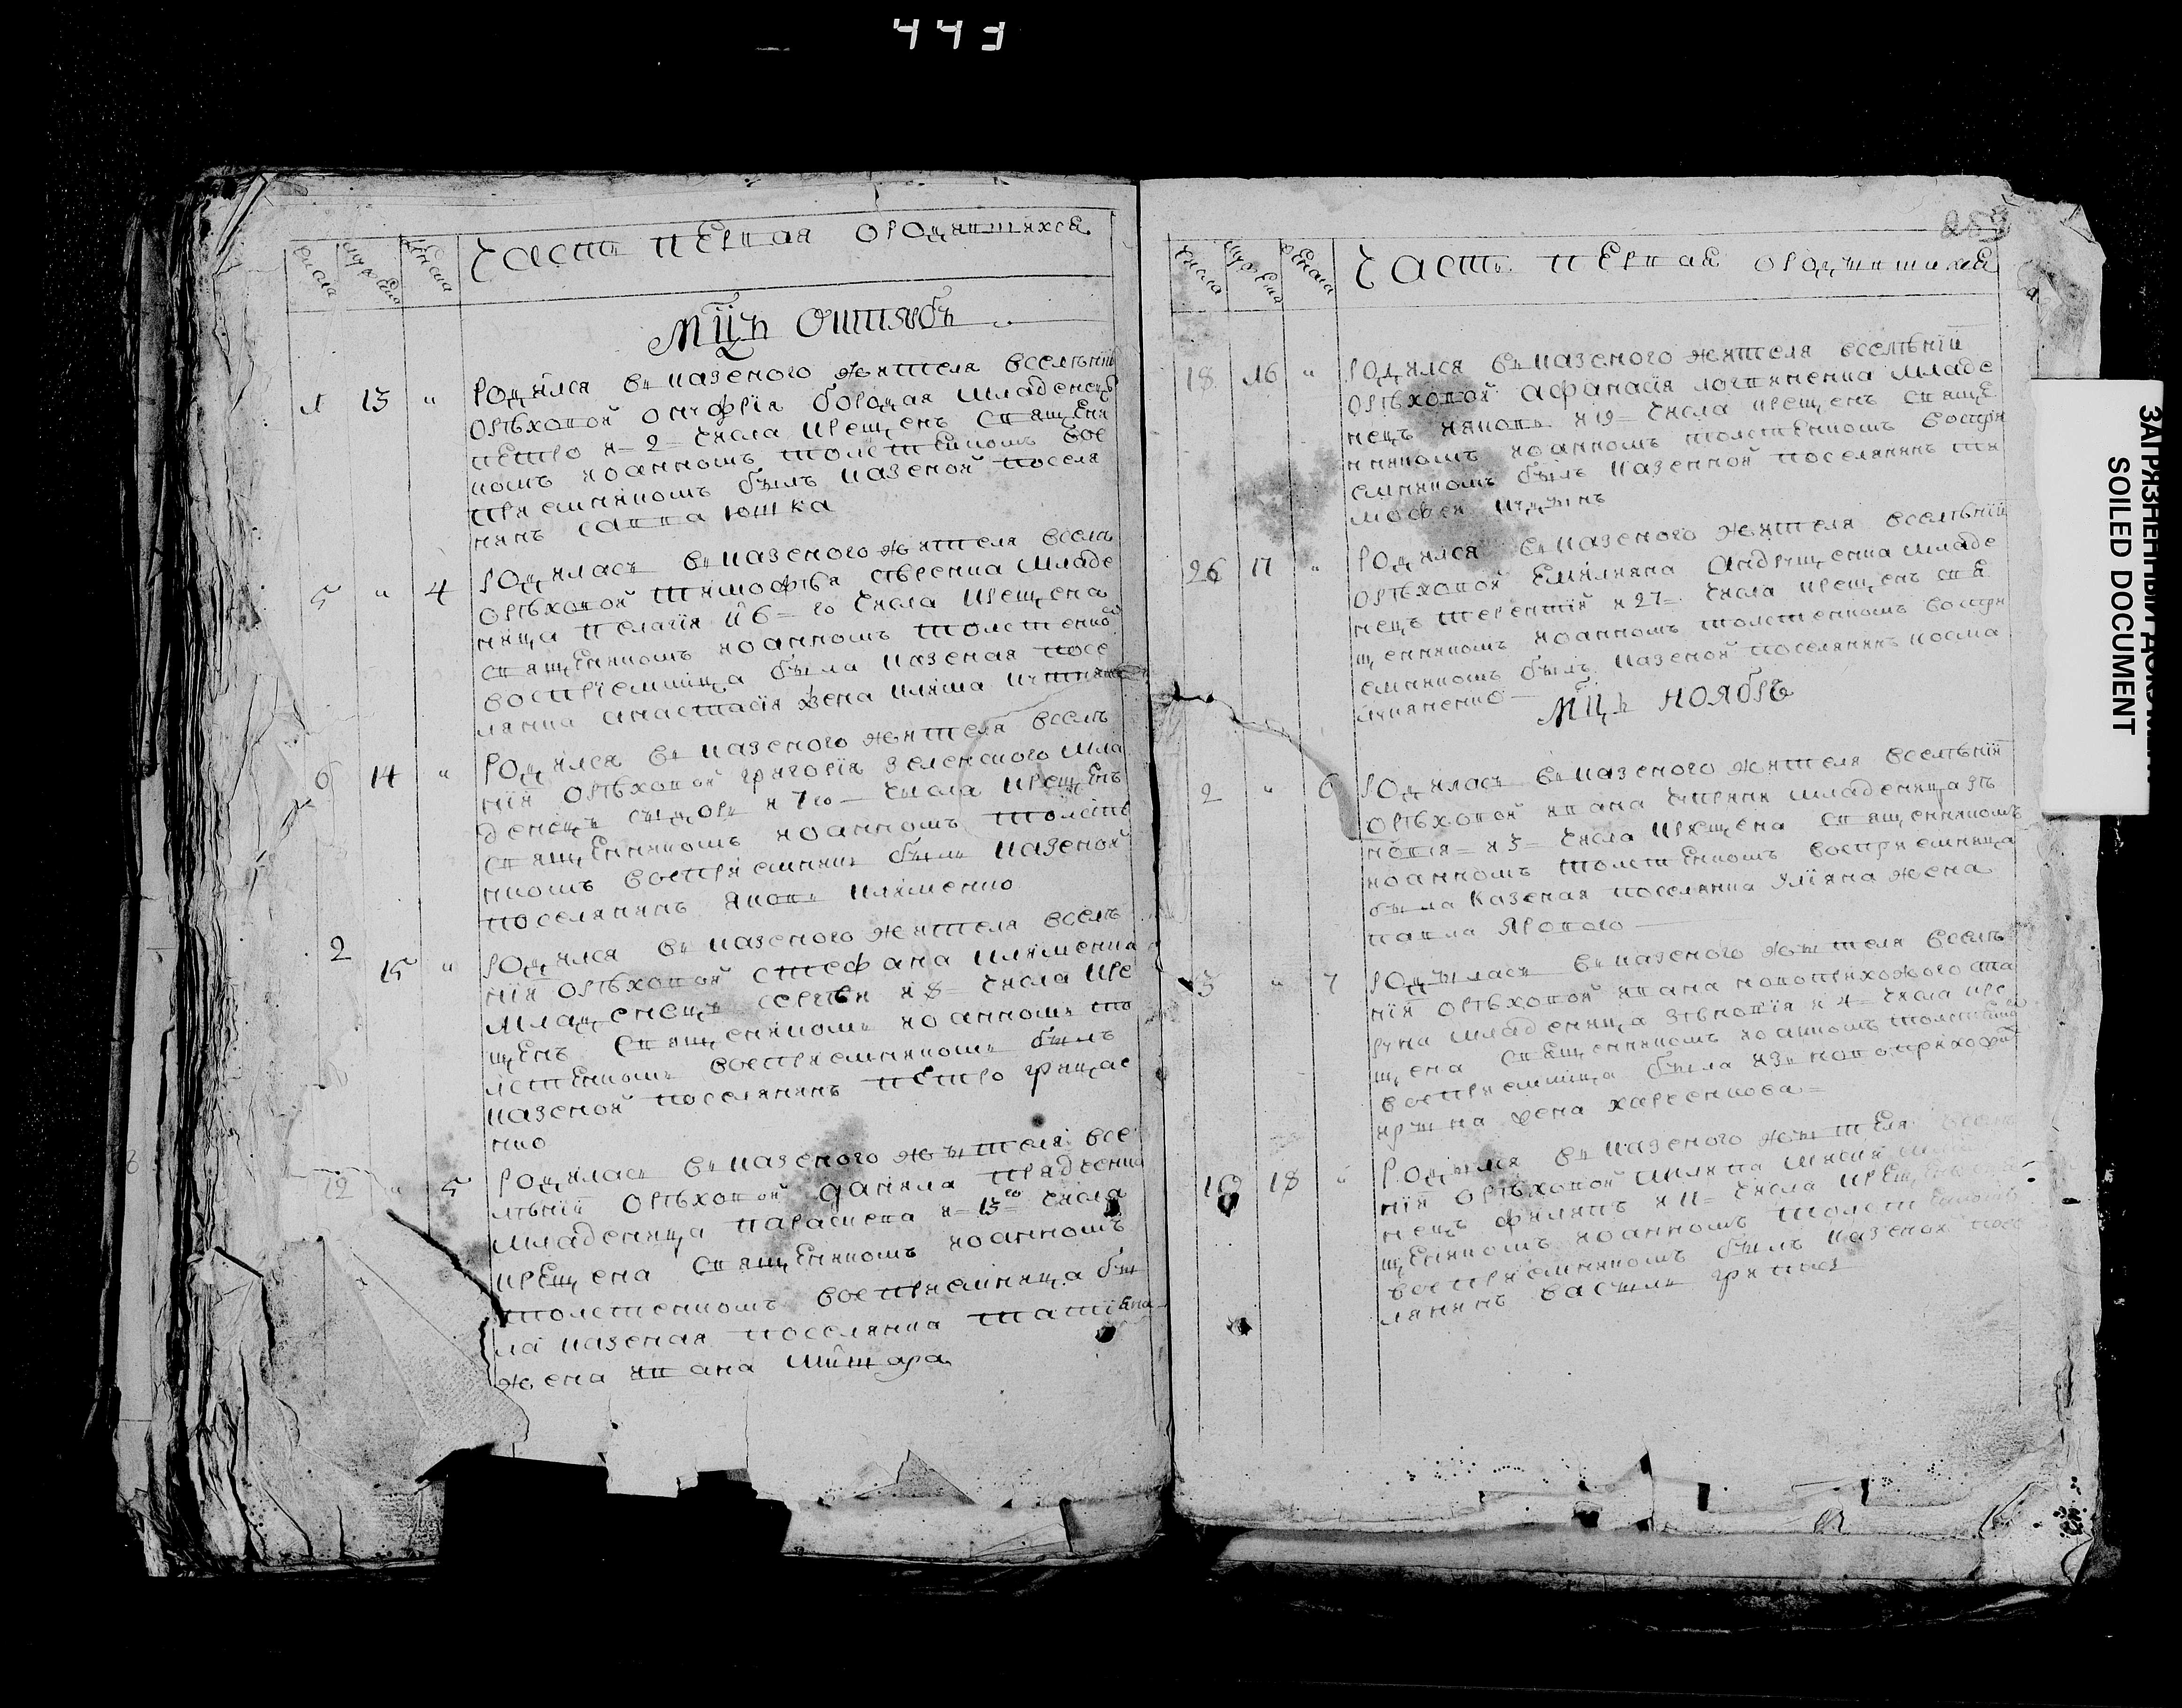 443
ЗАГРЯЗНЕННЫЙ ДОКУМЕНТ
SOILED DOCUMENT
числа
муж еска
женска
Часть первая ородившихся
Мцъ Октябрь
1 13 "
родился вк казеного жителя вселѣнїи
орѣховой онуфрїя бородая младенецъ
петро и 2 числа крещенъ священи
комъ иоанномъ толстенкомъ вос
приемникомъ былъ казеной поселя
нинъ савва юшка
5 " 4
родиласъ вк казеного жителя вселѣ
орѣховой тимофѣя младе
ница пелагїя и 6 го числа крещена
священникомъ иоанномъ толстенко
воспрїемница была казеная посе
лянка анастасїя жена
6 14 "
родился вк казеного жителя вселѣ
нїи орѣховой григорїя зеленского мла
денецъ сидоръ и 7 го числа крещенъ
священникомъ иоанномъ толсте
нкомъ восприемникъ былъ казеной
поселянинъ яковъ клименко
2 15 "
родился вк казеного жителя вселѣ
нїи орѣховой стефана клименка
младенецъ сергѣи и 8 числа кре
щенъ священикомъ иоанномъ то
лстенкомъ восприемникомъ былъ
казеной поселянинъ петро грицае
нко
12 " 5
родиласъ вк казеного жытеля все
лѣнїи орѣховой данила прядченка
младеница параскева и 13 го числа
крещена священикомъ иоанномъ
толстенкомъ восприемница бы
ла казеная поселянка татїяна
жена ивана
253
числа
муж еска
женска
Часть первая ородившихся
18 16 "
родился вк казеного жителя вселѣнїи
орѣховой афанасїя логвиненка младе
нецъ яковъ и 19 числа крещенъ свяще
нникомъ иоанномъ толстенкомъ воспри
емникомъ былъ казенной поселянинъ ти
мофеи
26 17 "
родился вк казеного жителя вселѣнїи
орѣховой емиляна андрущенка младе
нецъ терентїй и 27 числа крещенъ свя
щенникомъ иоанномъ толстенкомъ воспри
емникомъ былъ казеной поселянинъ косма
Мцъ ноябрь
2 " 6
родиласъ вк казеного жителя вселѣнїи
орѣховой ивана младеница зѣ
новїя и 3 числа крещена священникомъ
иоанномъ толстенкомъ восприемница
была казеная поселянка улїяна жена
павла ярового
3 " 7
родыласъ вк казеного жытеля вселѣ
нїи орѣховой ивана новоприхожого
младеница зѣновїя и 4 числа кре
щена священникомъ иоанномъ толстенко
восприемница была изъ новоприхожи
ирына жена харченкова
10 18 "
родылся вк казеного жытеля вселѣ
нїи орѣховой
нецъ филипъ и 11 числа крещенъ
щеникомъ иоанномъ толстенкомъ
восприемникомъ былъ казеной посе
лянинъ василь